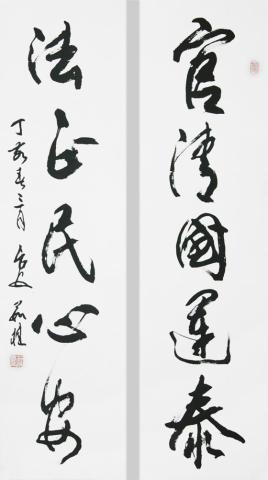 官清國運泰
法正民心安
丁亥春三月